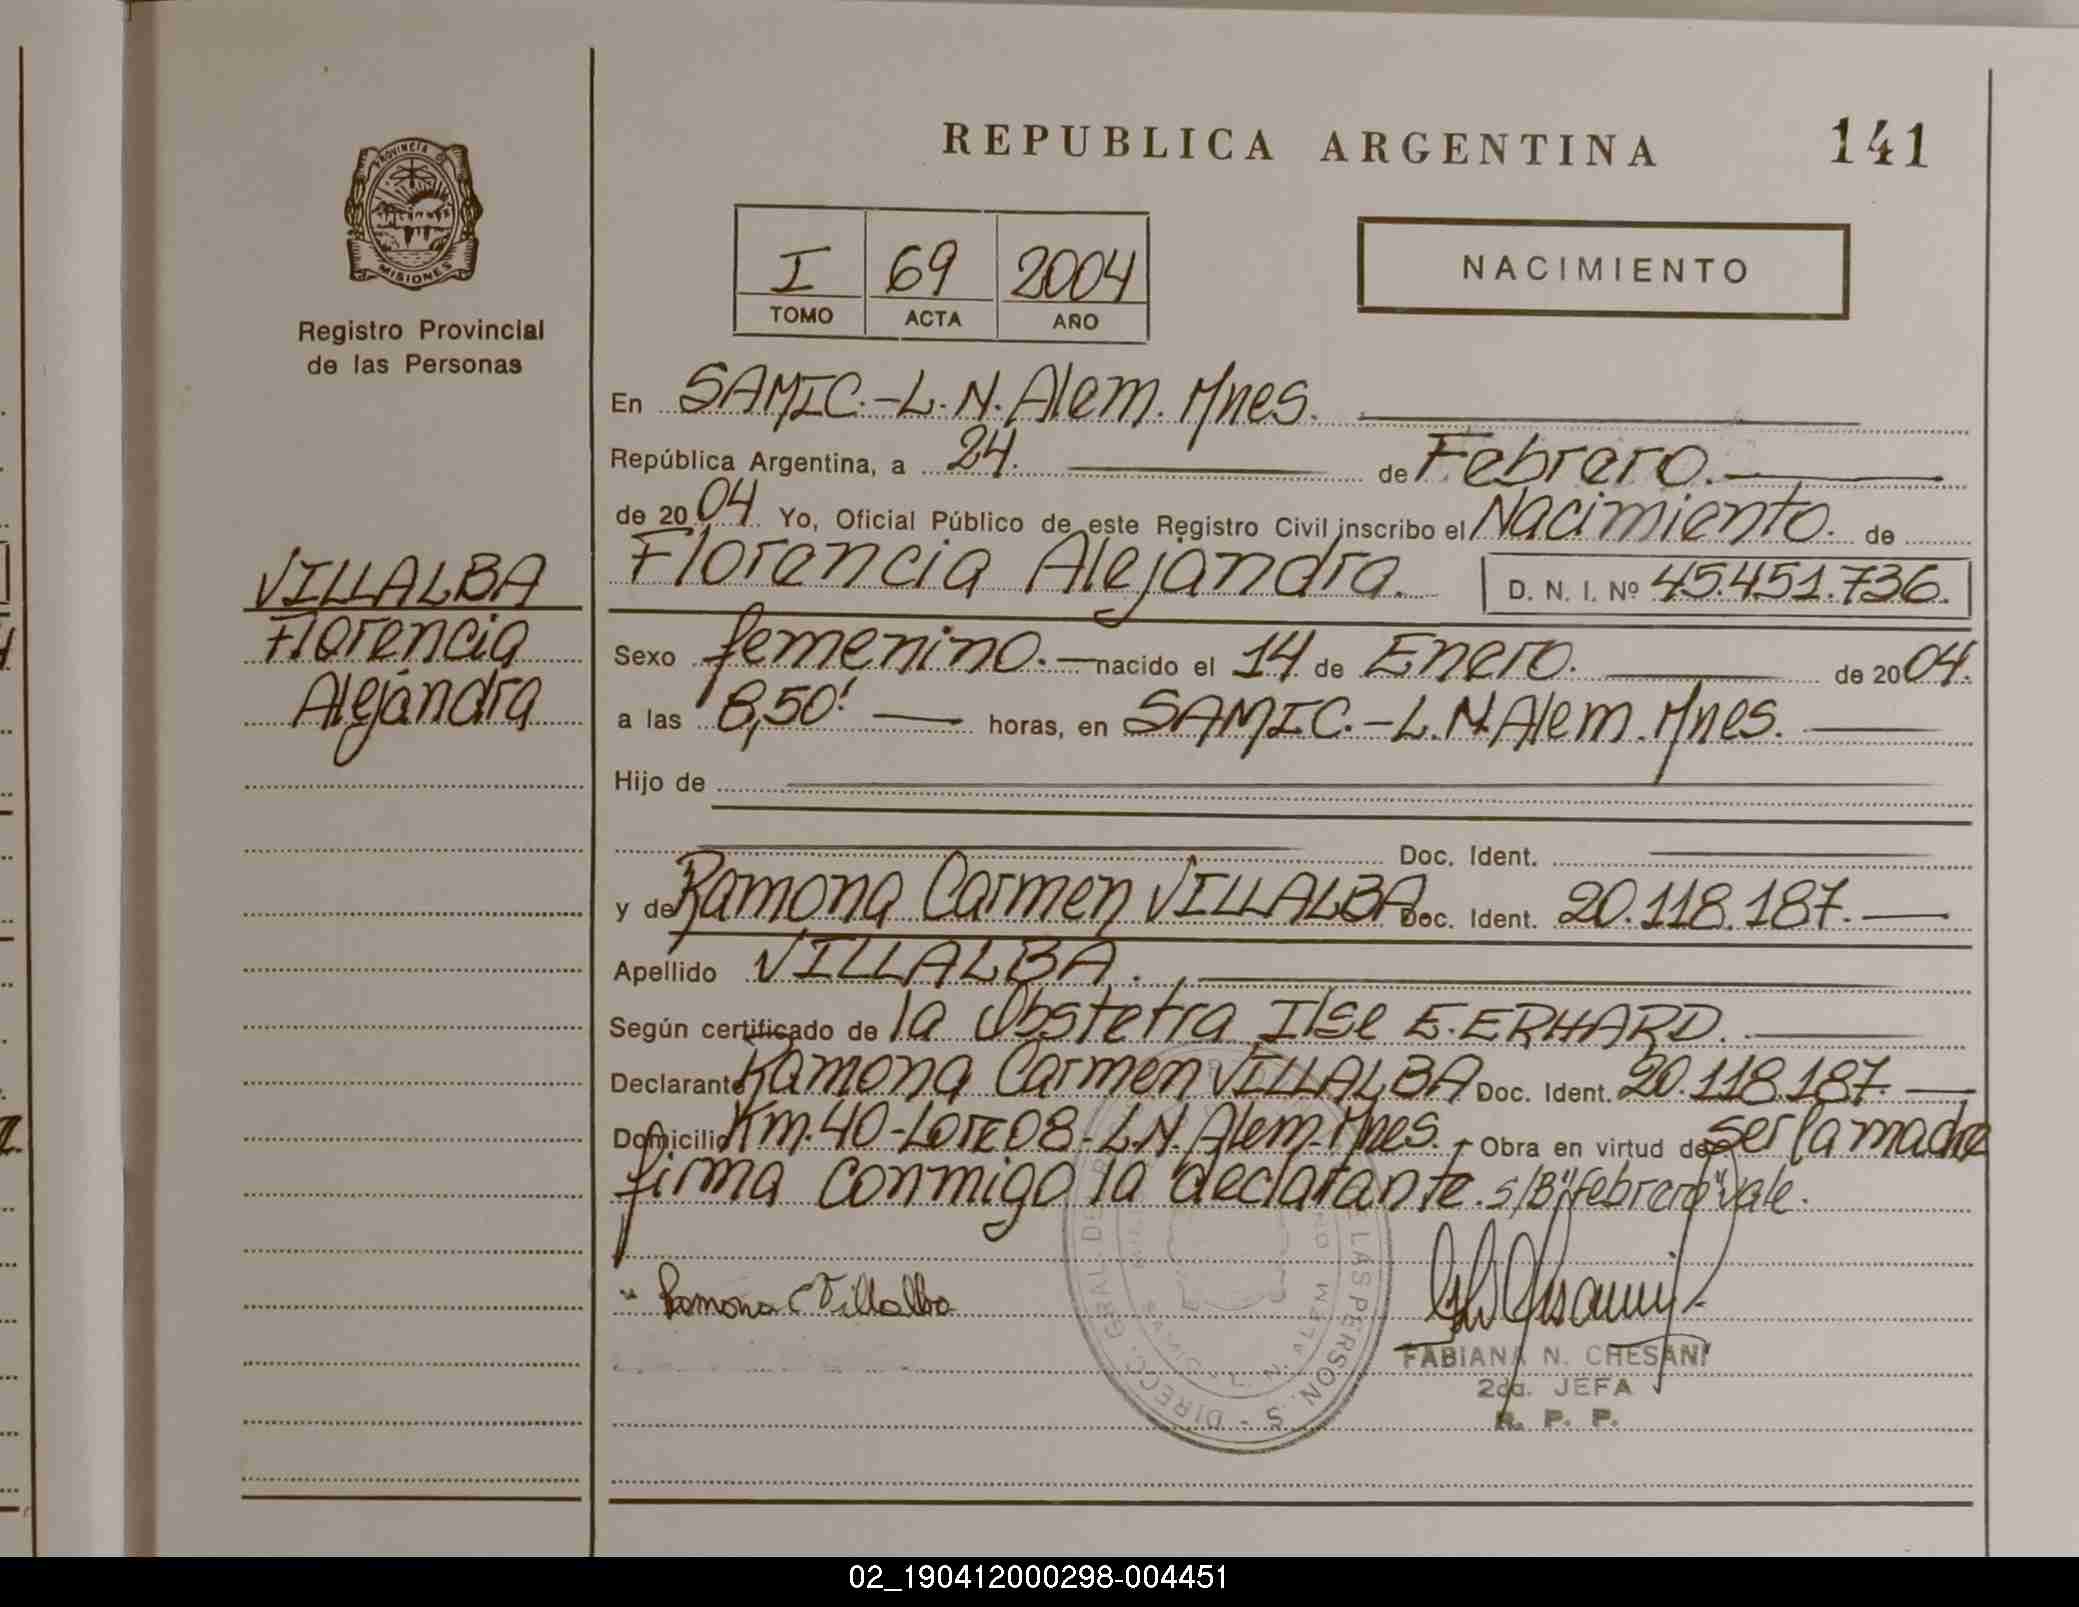 REPUBLICA ARGENTINA
141
PROVINCIA D
MISIONES
Registro Provincial
de las Personas
I 69 2004
TOMO ACTA AÑO
NACIMIENTO
En SAMIC.-L.N.Alem.Mnes.
República Argentina, a 24. de Febrero.
de 2004 Yo, Oficial Público de este Registro Civil inscribo el Nacimiento. de
Florencia Alejandra. D. N. I. Nº 45.451.736.
VILLALBA
Florencia
Alejandra
Sexo femenino.- nacido el 14 de Enero. de 2004.
a las 8,50' horas, en SAMIC.-L.N.Alem.Mnes.
Hijo de
Doc. Ident.
y de Ramona Carmen VILLALBA Doc. Ident. 20.118.187.
Apellido VILLALBA.
Según certificado de la Obstetra Ilse E. ERHARD.
Declarante Ramona Carmen VILLALBA Doc. Ident. 20.118.187.
Domicilio Km.40-Lote 08-L.N.Alem-Mnes.- Obra en virtud de ser la madre
firma conmigo la declarante. s/B"febrero"vale.
Ramona C Villalba
FABIANA N. CHESANI
2da. JEFA
R. P. P.
02_190412000298-004451